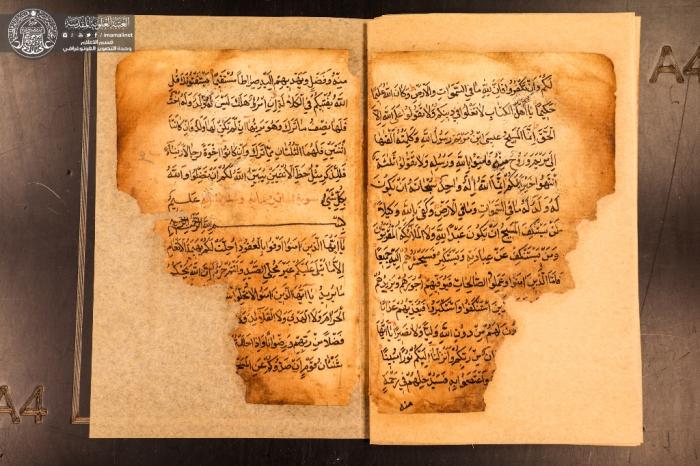 العتبة العلوية المقدسة
قسم الإعلام
وحدة التصوير الفوتوغرافي
imamalinet
www.imamali.net
لكم وان تكفروا فان لله ما في السموات والارض وكان الله عليما
حكيما يا اهل الكتاب لا تغلوا في دينكم ولا تقولوا على الله الا
الحق انما المسيح عيسى ابن مريم رسول الله وكلمته القها
الى مريم وروح منه فامنوا بالله ورسله ولا تقولوا ثلثة
انتهوا خيرا لكم انما الله اله واحد سبحانه ان يكون
له ولد له ما في السموات وما في الارض وكفى بالله وكيلا
لن يستنكف المسيح ان يكون عبدا لله ولا الملائكة المقربون
ومن يستنكف عن عبادته ويستكبر فسيحشرهم اليه جميعا
فاما الذين امنوا وعملوا الصالحات فيوفيهم اجورهم ويزيدهم
استنكفوا واستكبروا فيعذبهم عذابا
لهم من دون الله وليا ولا نصيرا يا ايها
من ربكم وانزلنا اليكم نورا مبينا
واعتصموا به فسيدخلهم في رحمة
منه
منه وفضل ويهديهم اليه صراطا مستقيما يستفتونك قل
الله يفتيكم في الكلالة ان امرؤ هلك ليس له ولد وله اخت
فلها نصف ما ترك وهو يرثها ان لم يكن لها ولد فان كانتا
اثنتين فلهما الثلثان مما ترك وان كانوا اخوة رجالا ونساء
فللذكر مثل حظ الانثيين يبين الله لكم ان تضلوا والله
بكل شيء عليم
بسم الله الرحمن الرحيم
يا ايها الذين امنوا اوفوا بالعقود احلت لكم بهيمة الانعام
الا ما يتلى عليكم غير محلي الصيد وانتم حرم ان الله يحكم
ما يريد يا ايها الذين امنوا لا تحلوا
الحرام ولا الهدي ولا القلائد ولا
فضلا من ربهم ورضوانا واذا حللتم
شنئان قوم ان صدوكم عن المسجد
A4
A4